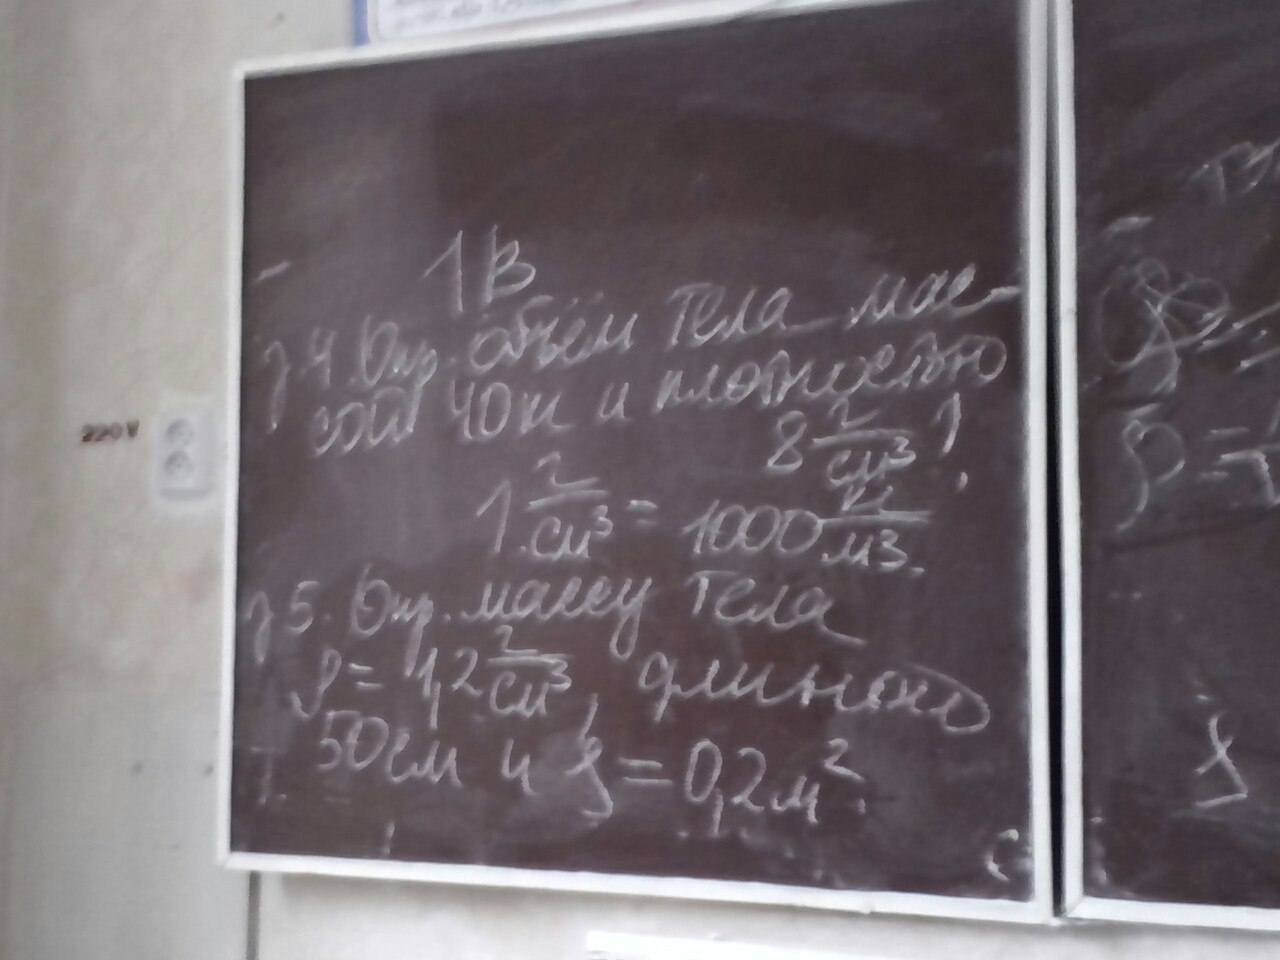 220V
1В
з 4. Опр. объём тела мас-
сой 40т и плотностью
8 г/см³!
1 г/см³ = 1000 кг/м3.
з 5. Опр. массу тела
ρ = 1,2 г/см³, длиною
50см и S = 0,2м².
ρ =
S